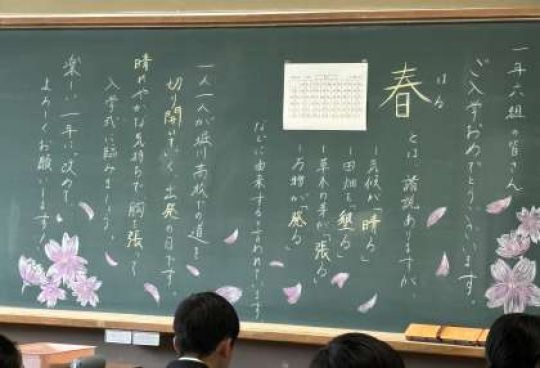 一年六組の皆さん
ご入学おめでとうございます。
はる
春
とは、諸説ありますが、
ー気候が「晴る」
ー田畑を「墾る」
ー草木の芽が「張る」
ー万物が「発る」
などに由来すると言われています。
一人一人が堀川高校での道を
切り開いていく、出発の日です。
晴れやかな気持ちで、胸を張って
入学式に臨みましょう。
楽しい一年に。改めて、
よろしくお願いします!